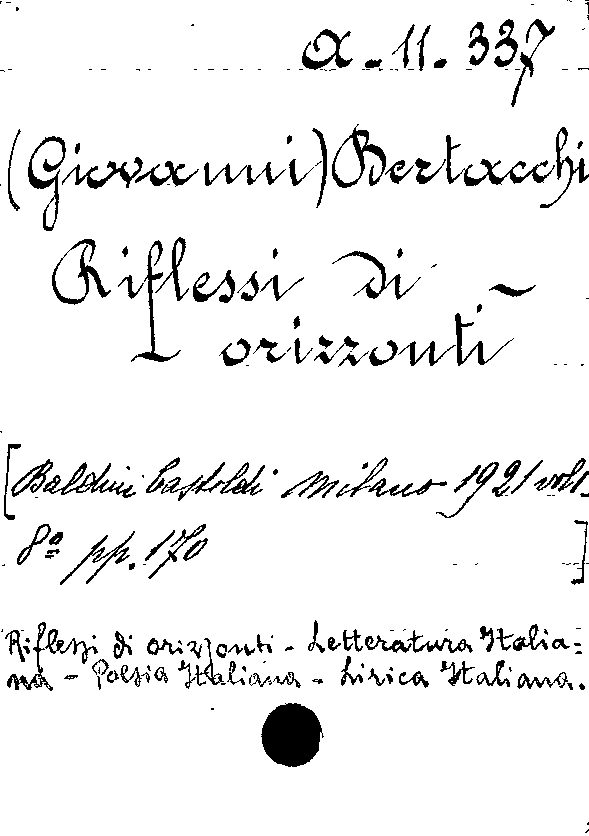 a - 11. 337
(Giovanni) Bertacchi
Riflessi di
orizzonti
[Baldini Castoldi Milano 1921 vol 1.
8º pp. 170 ]
Riflessi di orizzonti - Letteratura Italia=
na - Poesia Italiana - Lirica Italiana.